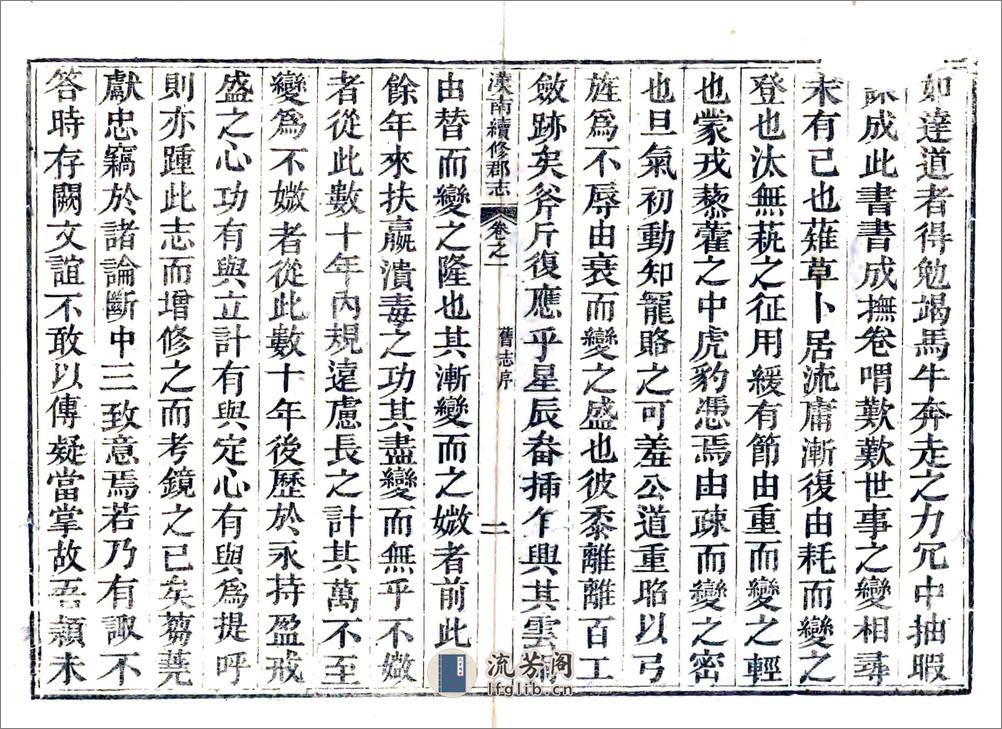 如達道者得勉竭馬牛奔走之力冗中抽暇
成此書書成撫卷喟歎歎世事之變相尋
未有已也薙草卜居流庸漸復由耗而變之
登也汰無蓺之征用緩有節由重而變之輕
也蒙戎藜藿之中虎豹憑焉由疎而變之密
也旦氣初動知寵賂之可羞公道重昭以弓
旌為不辱由衰而變之盛也彼黍離離百工
斂跡矣斧斤復應乎星辰畚挿乍興其雲
漢南續修郡志 卷之一 舊志序 二
由替而變之隆也其漸變而之媺者前此
餘年來扶羸潰毒之功其盡變而無乎不媺
者從此數十年內規遠慮長之計其萬不至
變為不媺者從此數十年後歷於永持盈戒
盛之心功有與立計有與定心有與為提呼
則亦踵此志而增修之而考鏡之已矣蒭蕘
獻忠竊於諸論斷中三致意焉若乃有諏不
答時存闕文誼不敢以傳疑當掌故吾潁未
流芳阁
lfglib.cn